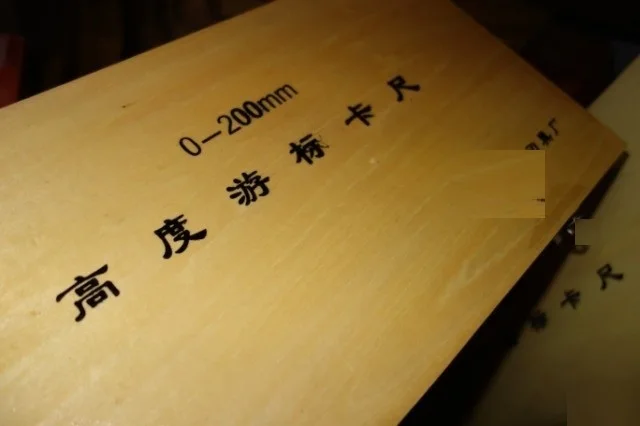 0-200mm
高度游标卡尺
具厂
卡尺